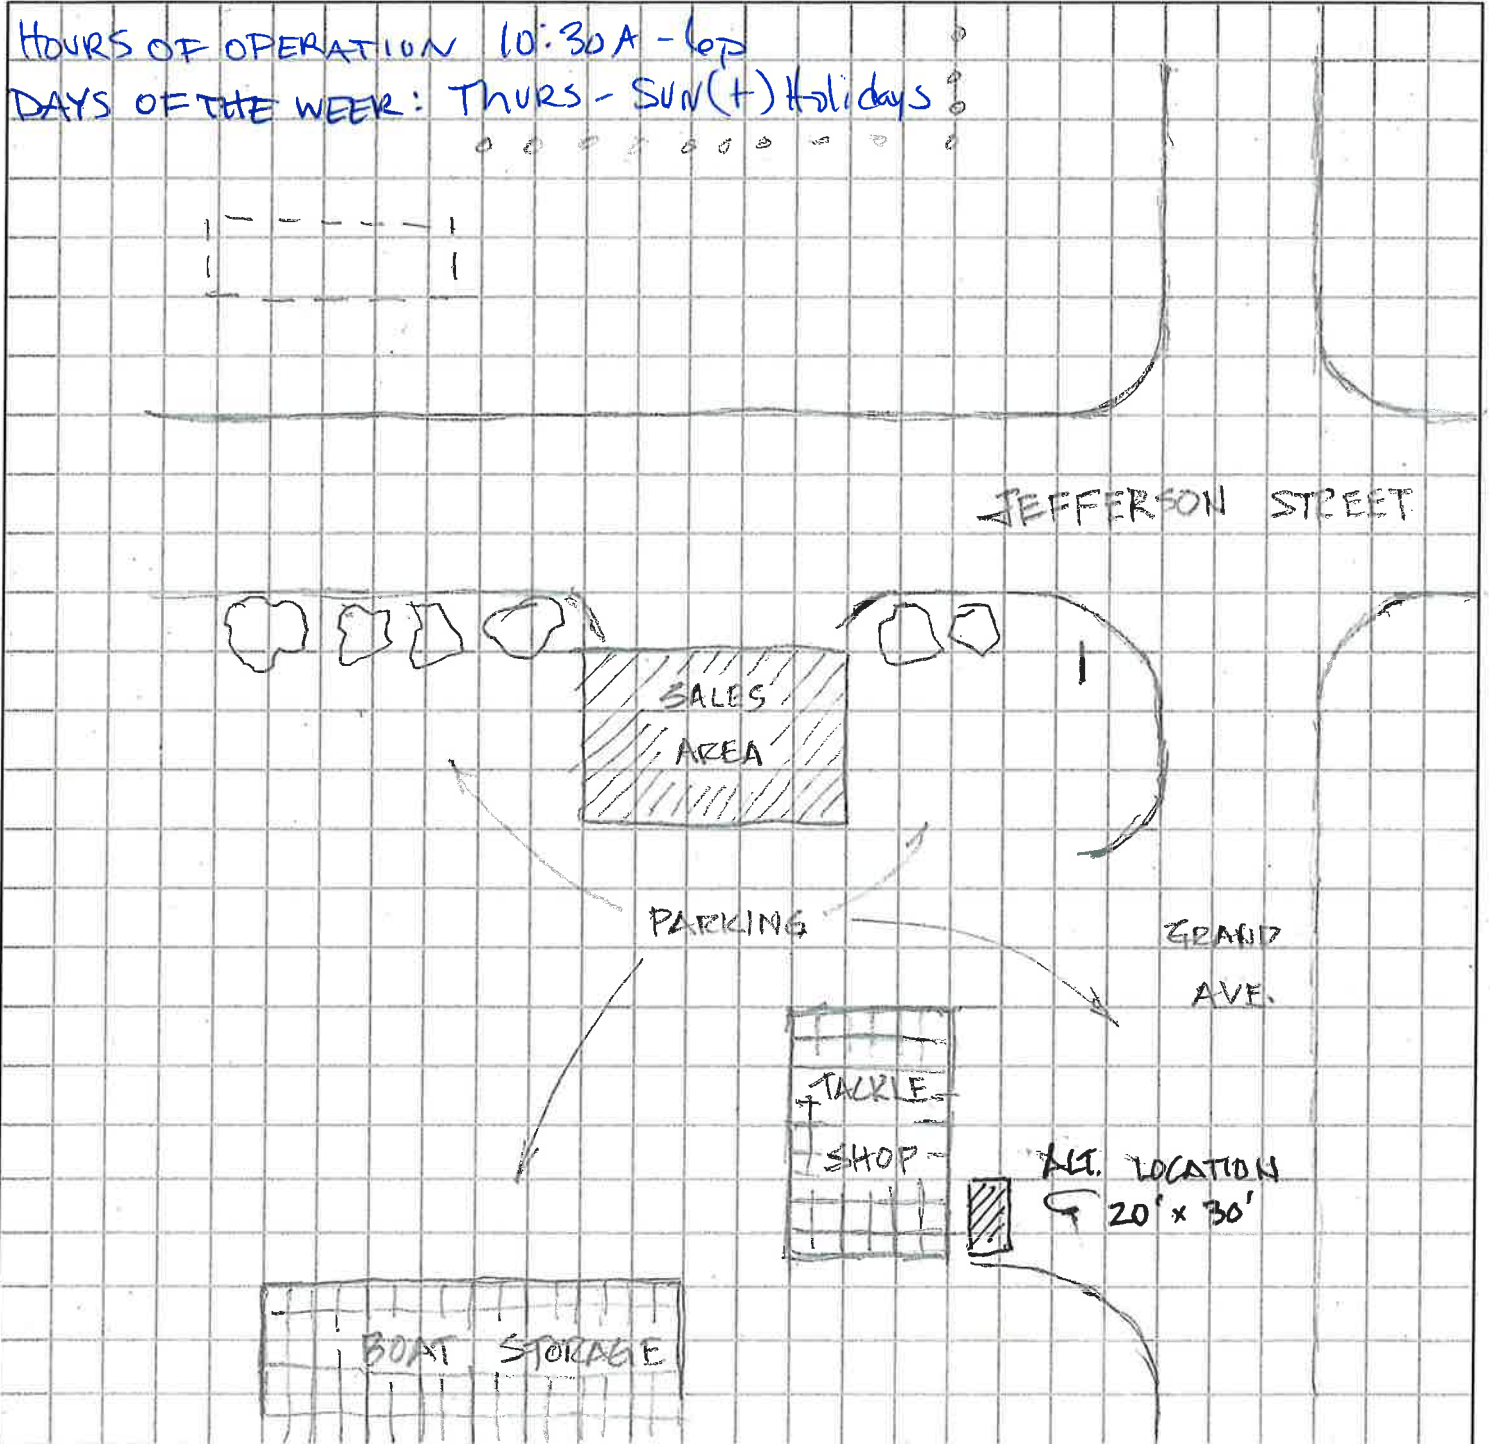 HOURS OF OPERATION 10:30A - 6p
DAYS OF THE WEEK: THURS - SUN (+) Holidays
JEFFERSON STREET
SALES
AREA
PARKING
GRAND
AVE.
TACKLE
SHOP
ALT. LOCATION
20' x 30'
BOAT STORAGE